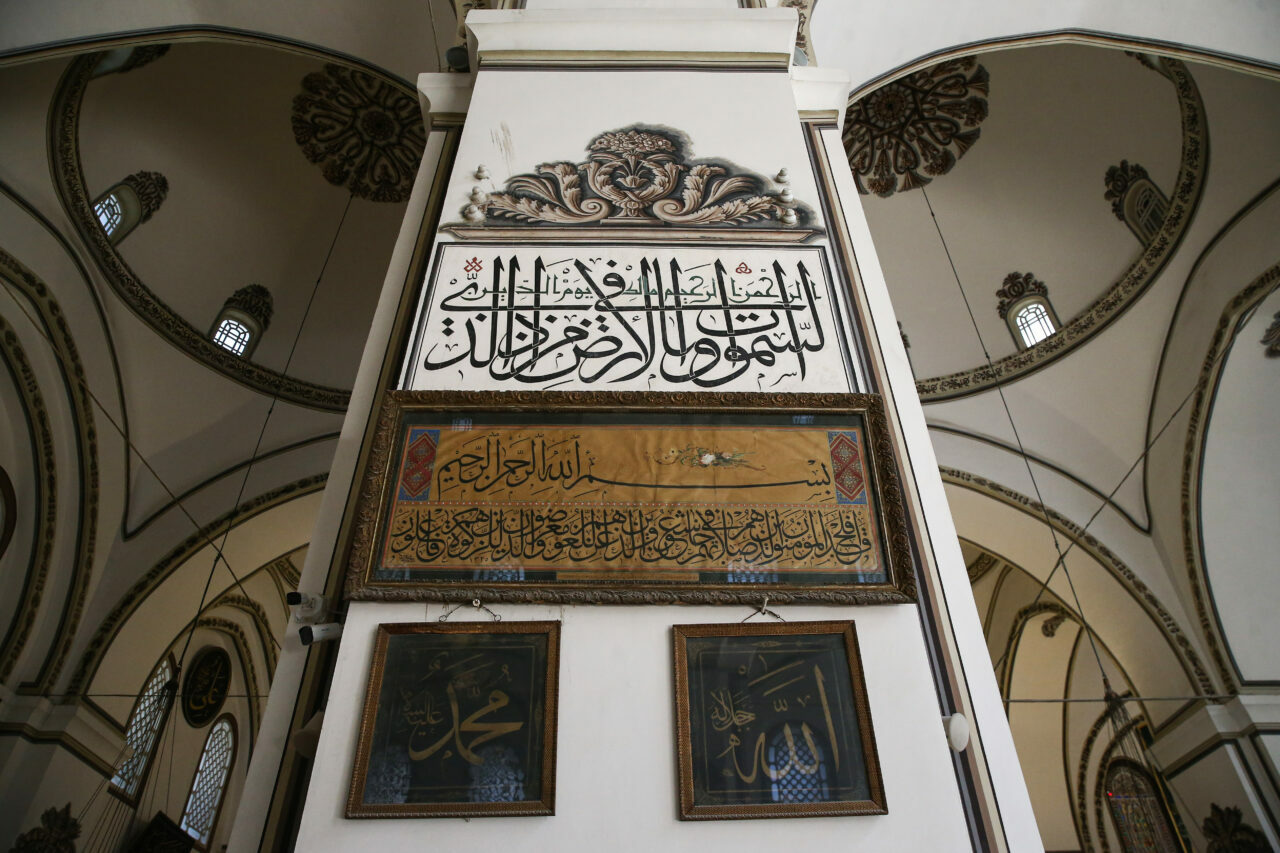 الرحمن الرحيم مالك يوم الدين
السموات وما في الارض من ذا الذي
بسم الله الرحمن الرحيم
قد افلح المؤمنون الذين هم في صلاتهم خاشعون والذين هم عن اللغو معرضون والذين هم للزكوة فاعلون
الله جل جلاله
محمد عليه السلام
علي